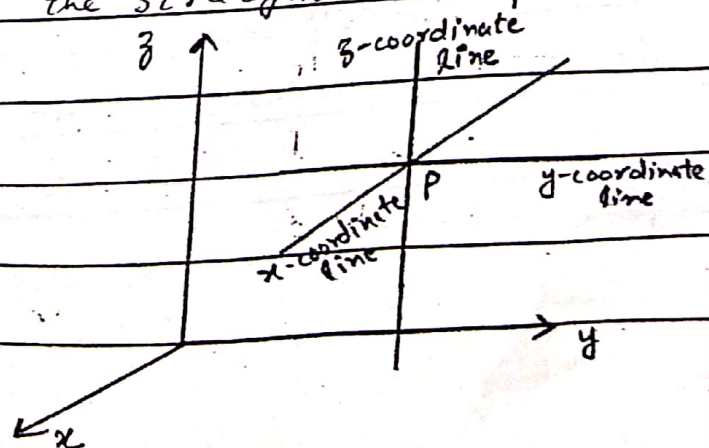 the
z
z-coordinate
line
P
y-coordinate
line
x-coordinate
line
y
x